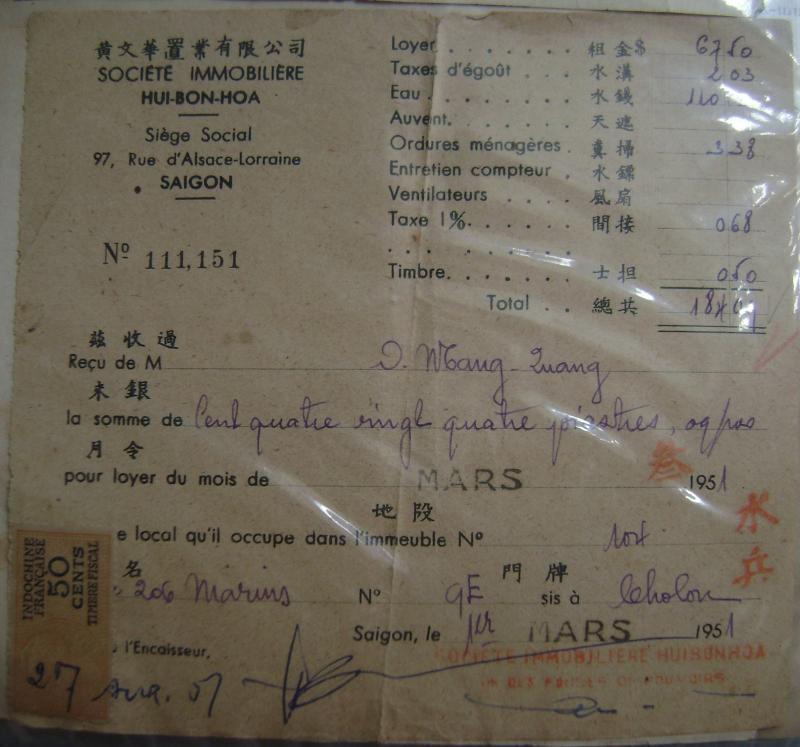 黃文華置業有限公司
SOCIÉTÉ IMMOBILIÈRE
HUI-BON-HOA
Siège Social
97, Rue d'Alsace-Lorraine
SAIGON
Nº 111,151
Loyer . . . . . . . 租金$ 67 50
Taxes d'égoût . . . 水溝 2 03
Eau . . . . . . . . 水錢 110
Auvent. . . . . . . 天遮
Ordures ménagères . 糞掃 3 38
Entretien compteur . 水鏢
Ventilateurs . . . . 風扇
Taxe 1%. . . . . . 間接 0 68
Timbre. . . . . . . 士担 0 50
Total . . 總共
茲收過
Reçu de M
Quang
来銀
la somme de Cent quatre vingt quatre piastres,
月令
pour loyer du mois de MARS 1951
叁
地段
e local qu'il occupe dans l'immeuble Nº 104
水
兵
名 門牌
206 Marins Nº 9E sis à Cholon
Saigon, le 1er MARS 1951
l'Encaisseur,
SOCIÉTÉ IMMOBILIÈRE HUIBONHOA
POUVOIRS
INDOCHINE
FRANÇAISE
50
CENTS
TIMBRE FISCAL
27